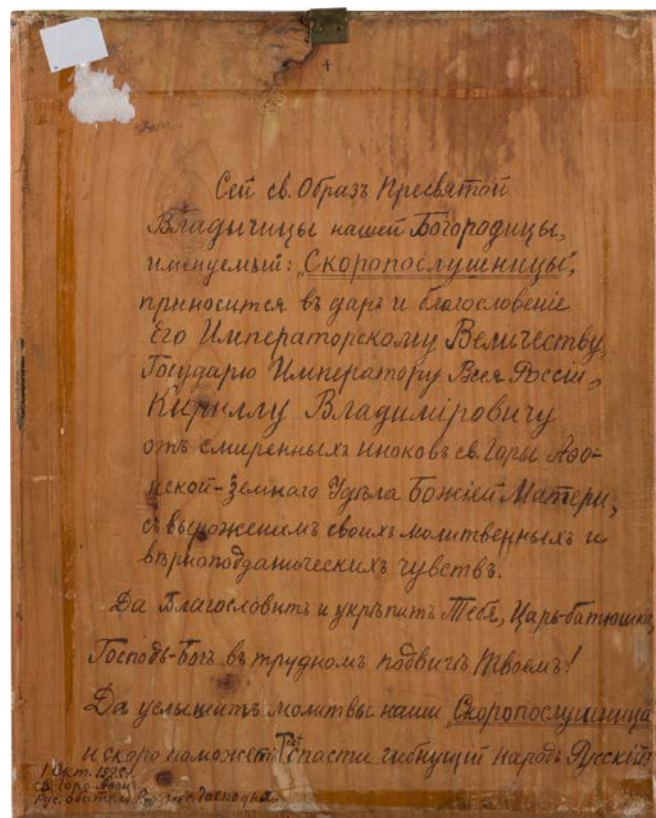 Сей св. Образъ Пресвятой
Владычицы нашей Богородицы,
именуемый: „Скоропослушницы",
приносится въ даръ и благословенiе
Его Императорскому Величеству,
Государю Императору Всея Россiи,
Кириллу Владимiровичу
отъ смиренныхъ иноковъ св. Горы Аѳо-
нской-земнаго Удѣла Божiей Матери,
съ выраженiемъ своихъ молитвенныхъ и
вѣрноподданическихъ чувствъ.
Да Благословитъ и укрѣпитъ Тебя, Царь-батюшка,
Господь-Богъ въ трудномъ подвигѣ Твоемъ!
Да услышитъ молитвы наши „Скоропослушница"
и скоро поможетъ Тебѣ спасти гибнущiй народъ Русскiй!
1 Окт.
св. Гора Аѳонъ
Рус. обитель Господня.